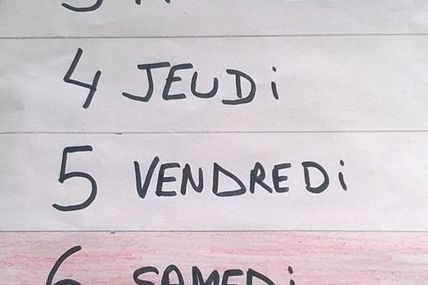 4 JEUDi
5 VENDREDi
6 SAMEDi